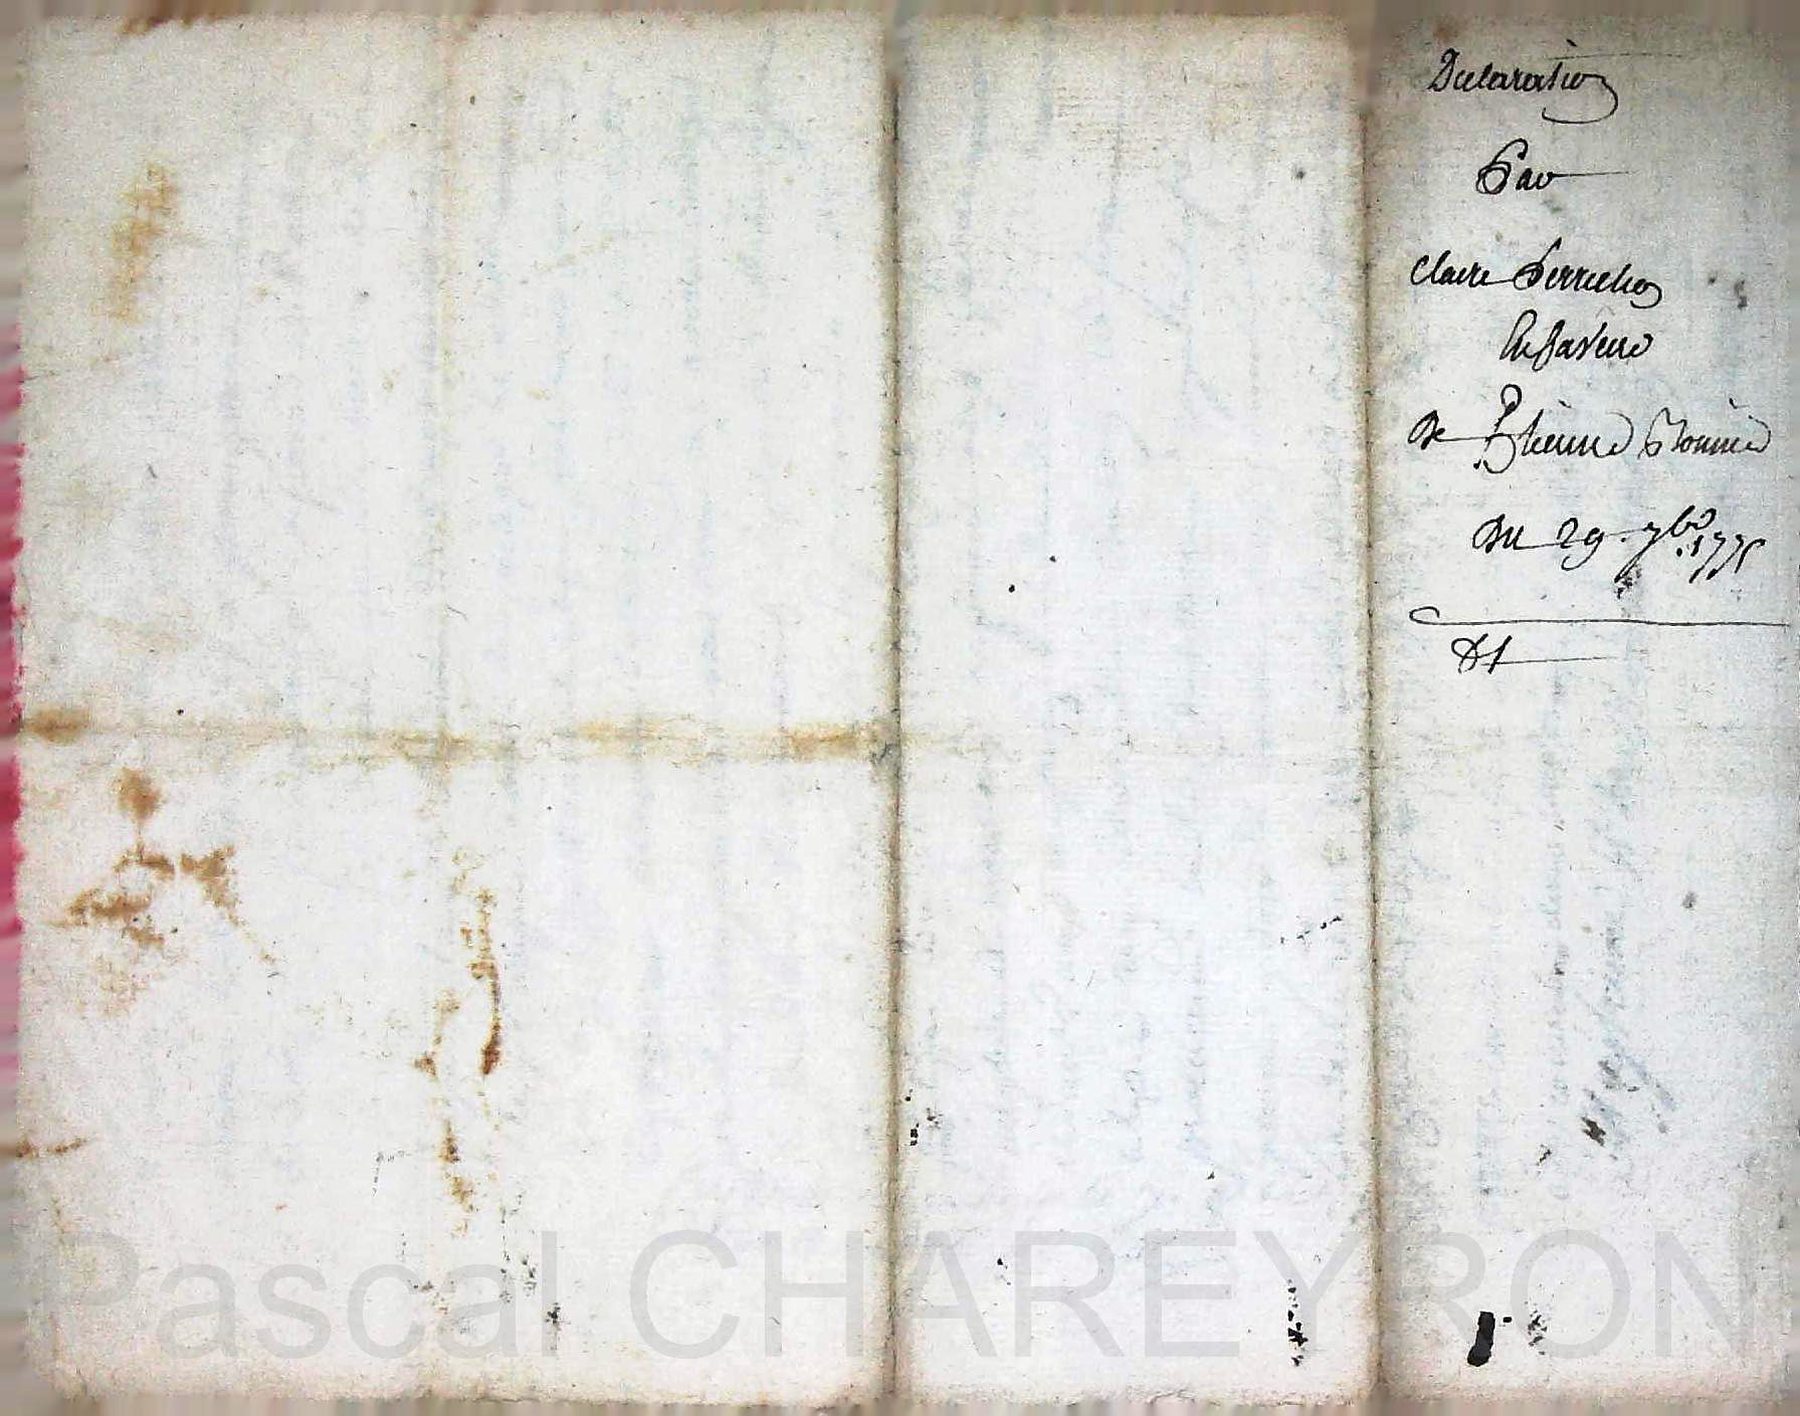 Declaration
Par
Claire Perrichon
En faveur
de Etienne
du 29 7bre 1775
Pascal CHAREYRON